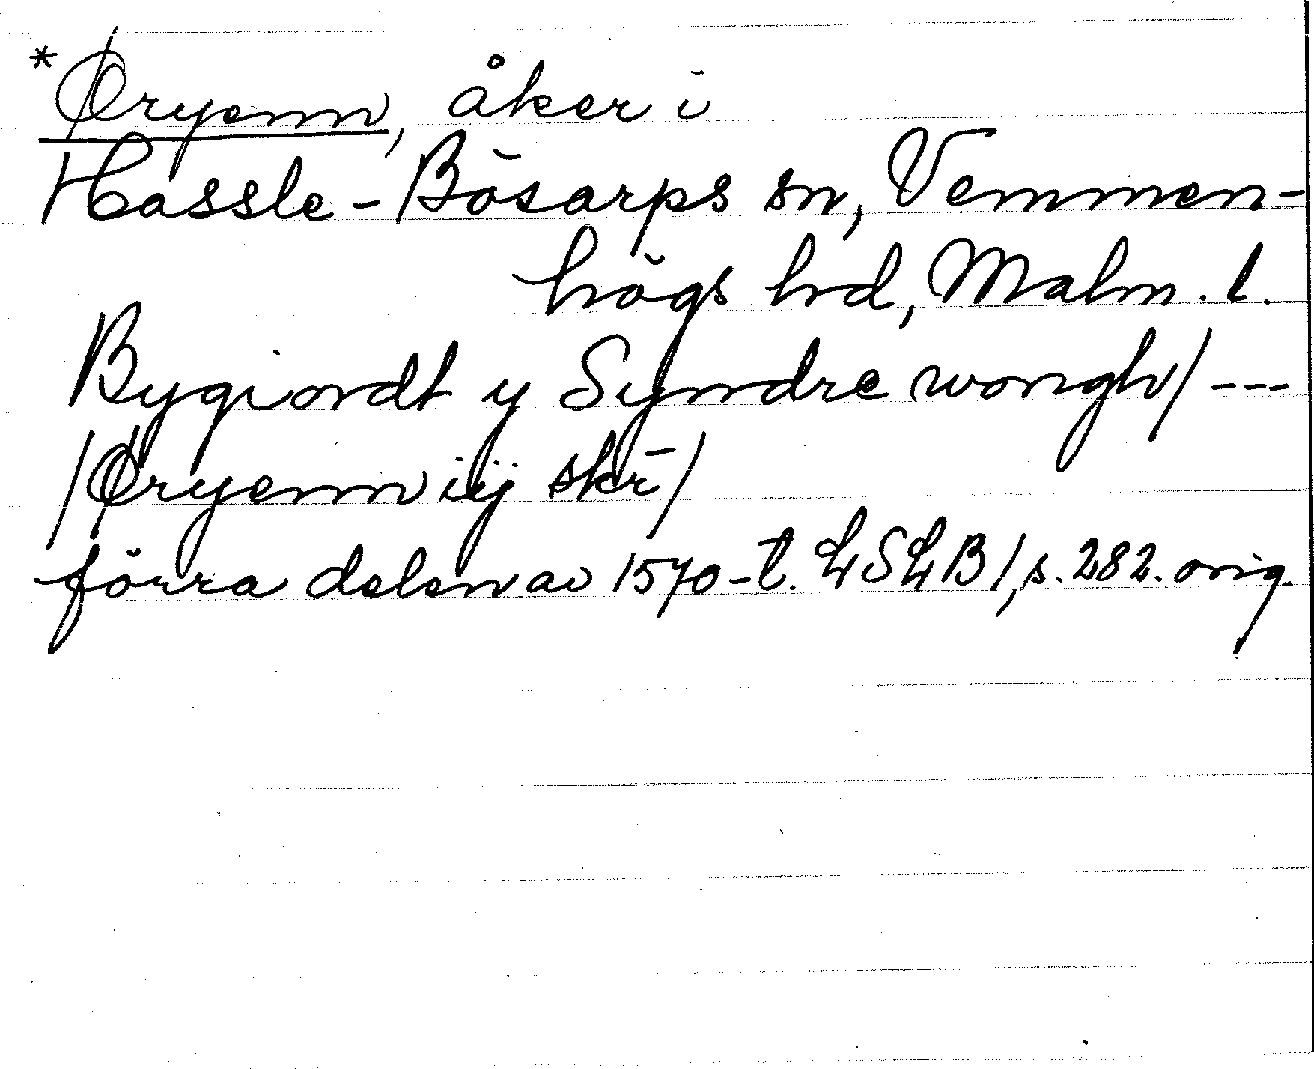 *Øryenn, åker i
Hassle-Bösarps sn, Vemmen-
högs hd, Malm. l.
Bygiordt y Syndre wongh/ ---
/Øryenn iij skr̄/
förra delen av 1570-t. LSLB 1, s. 282. orig.